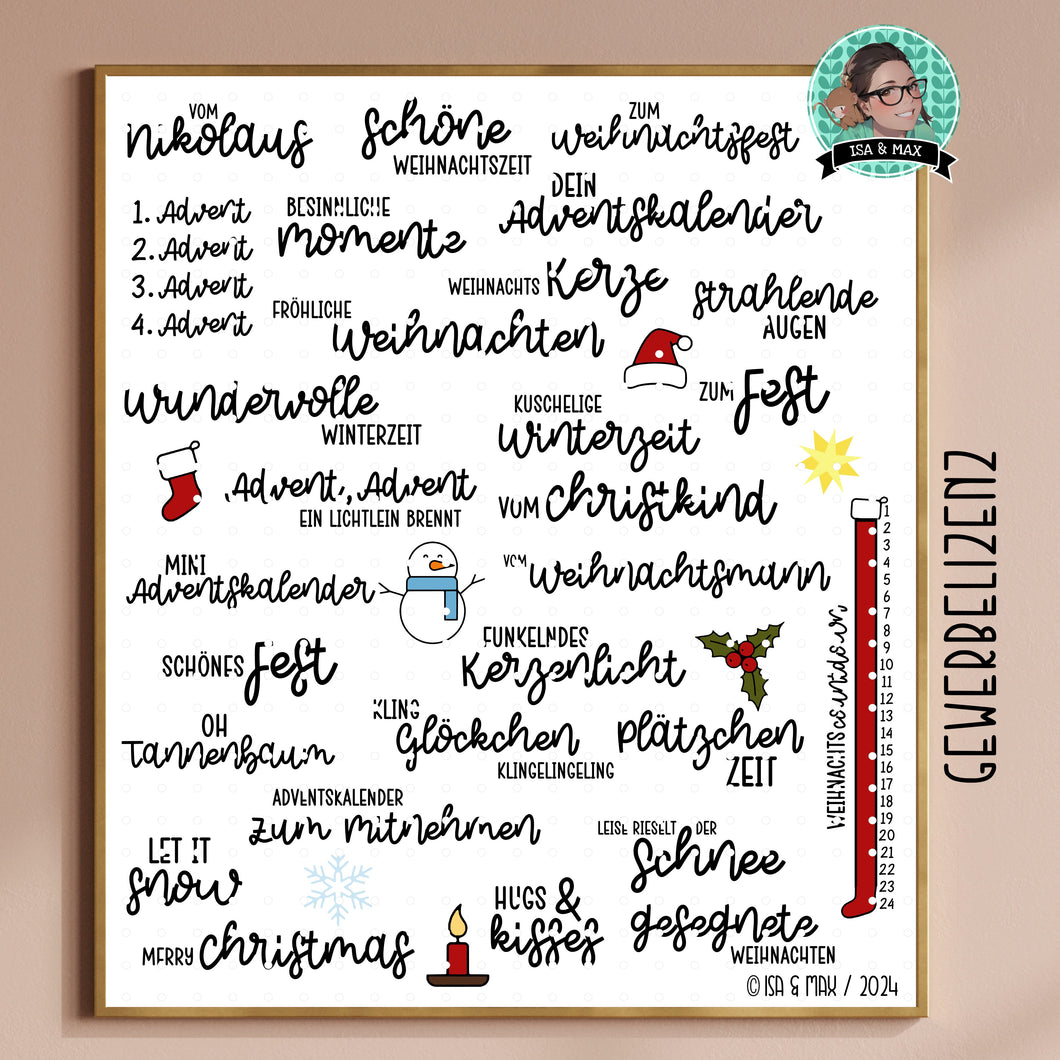 VOM
nikolaus
schöne
WEIHNACHTSZEIT
ZUM
weihnachtsfest
ISA & MAX
1. Advent
2. Advent
3. Advent
4. Advent
BESINNLICHE
momente
DEIN
Adventskalender
WEIHNACHTS Kerze
strahlende
AUGEN
FRÖHLICHE
weihnachten
wundervolle
WINTERZEIT
KUSCHELIGE
winterzeit
ZUM Fest
Advent, Advent
EIN LICHTLEIN BRENNT
VOM christkind
MINI
Adventskalender
VOM weihnachtsmann
SCHÖNES Fest
FUNKELNDES
Kerzenlicht
OH
Tannenbaum
KLING
Glöckchen
KLINGELINGELING
Plätzchen
ZEIT
WEIHNACHTScountdown
1
2
3
4
5
6
7
8
9
10
11
12
13
14
15
16
17
18
19
20
21
22
23
24
ADVENTSKALENDER
zum mitnehmen
LEISE RIESELT DER
schnee
LET IT
snow
MERRY christmas
HUGS &
kisses
gesegnete
WEIHNACHTEN
© ISA & MAX / 2024
GEWERBELIZENZ